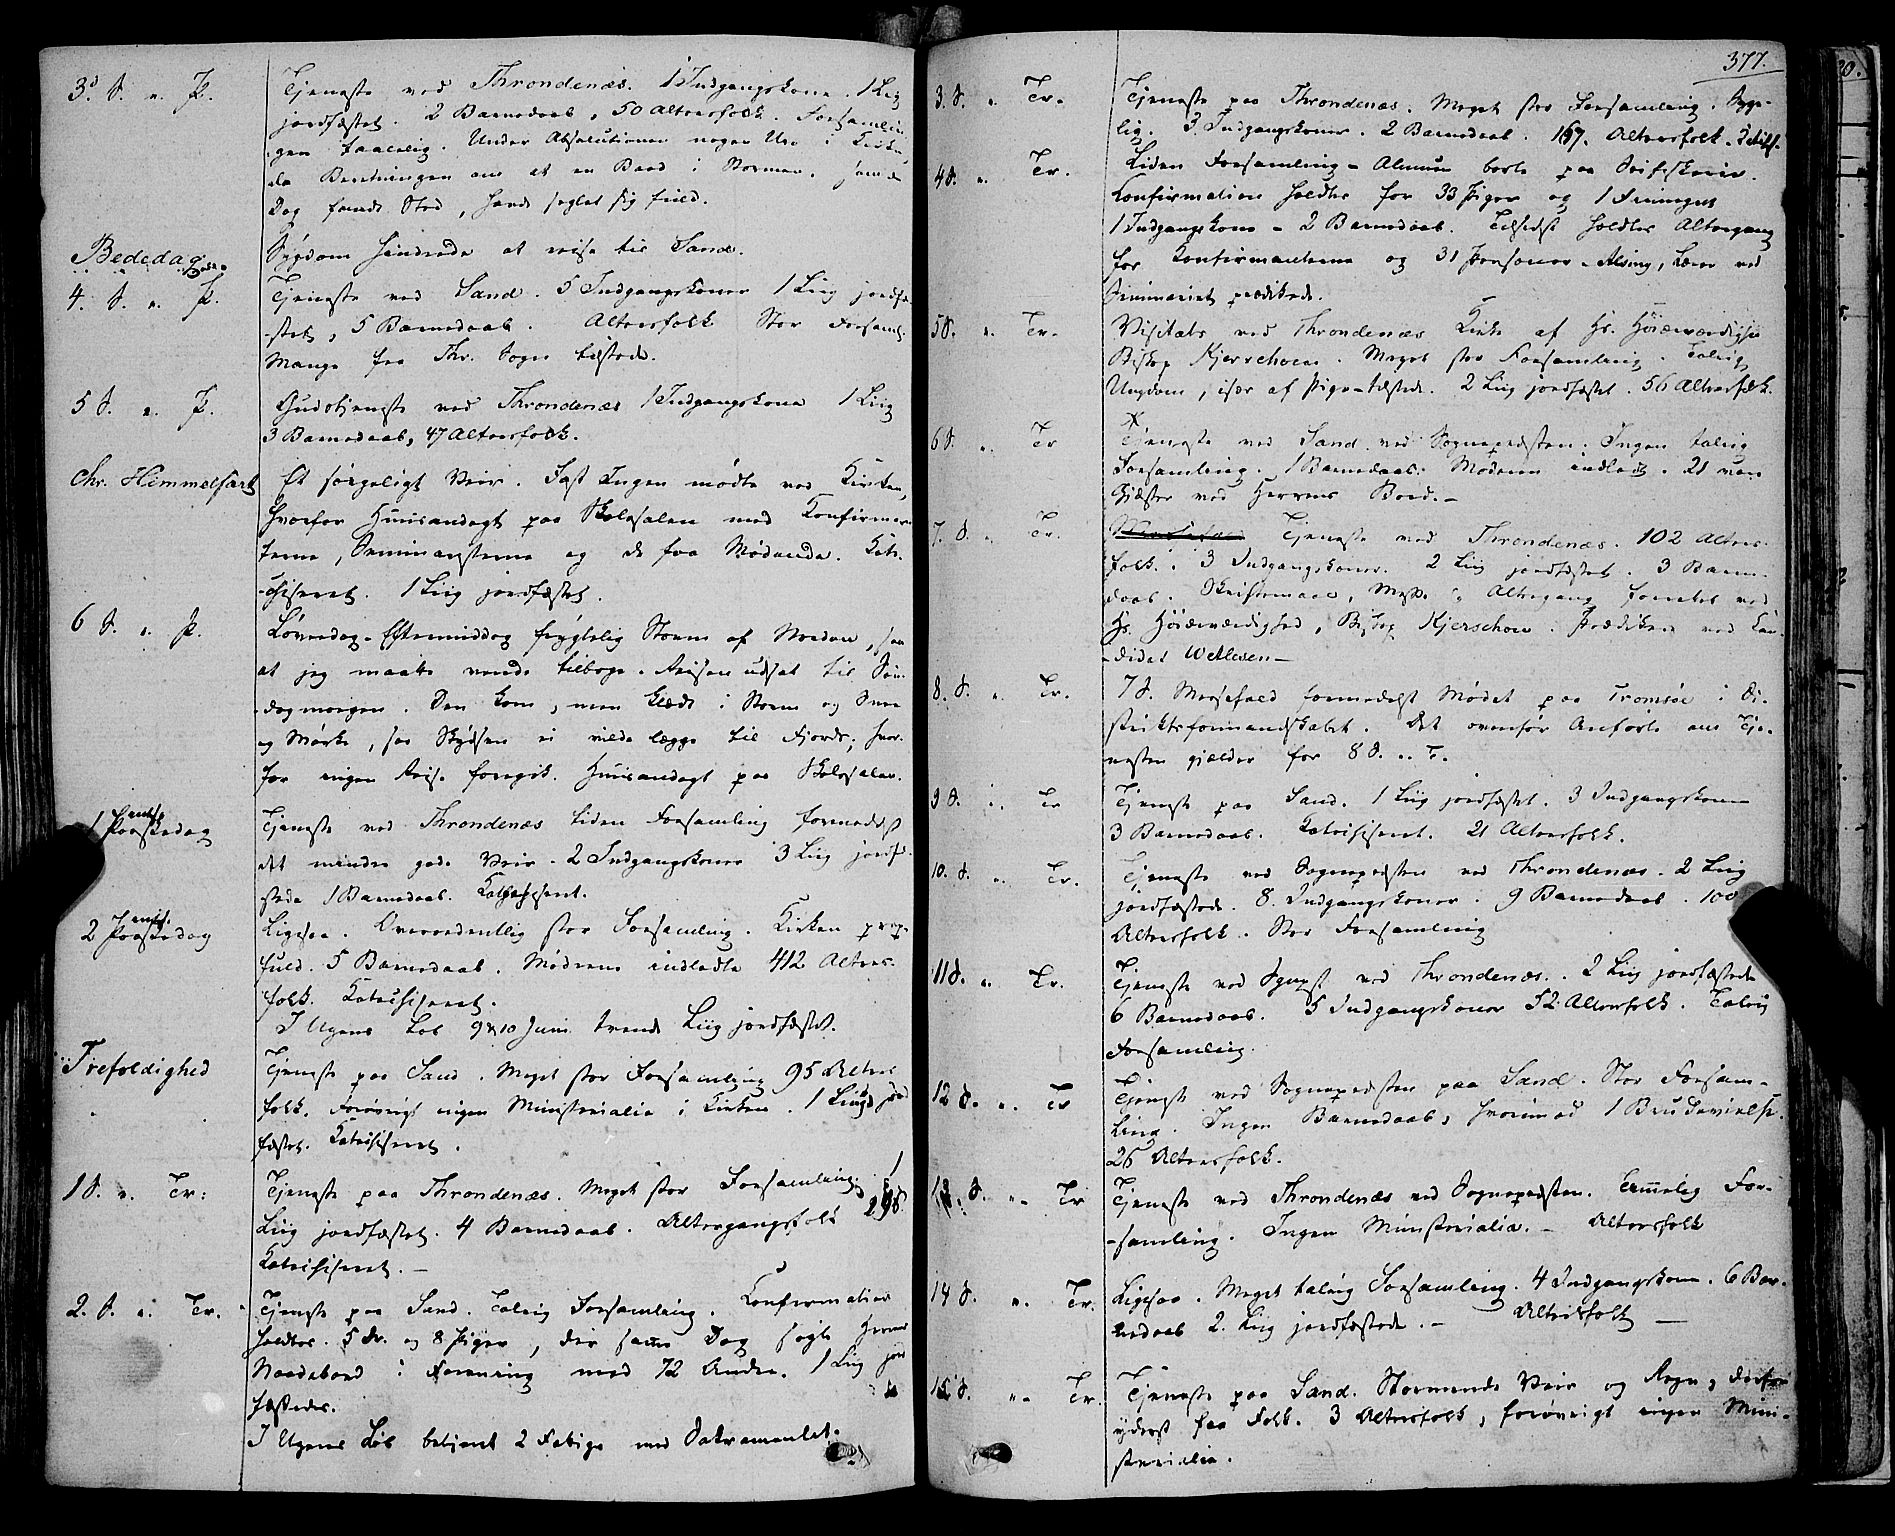 3d S. e. P. Tjeneste ved Throndenæs. 1 Indgangskone. 1 Liig
jordfæstet. 2 Barnedaab, 50 Altersfolk. Forsamlin-
gen taalelig. Under Absolutionen nogen Uro i Kirken,
da Beretningen om at en Baad i Stormen, samme
Dag fandt Sted, havde seglet sig fuld.
Bededag Sygdom hindrede at reise til Sand.
4. S. e. P. Tjeneste ved Sand. 5 Indgangskoner 1 Liig jordfæ-
stet, 5 Barnedaab. Altersfolk Stor Forsaml.
Mange fra Thr. Sogn tilstede.
5 S. e. P. Gudstjeneste ved Throndenæs 1 Indgangskone 1 Liig
3 Barnedaab, 47 Altersfolk.
Chr. Himmelfart Et sørgeligt Veir. Fast Ingen mødte ved Kirken,
hvorfor Huusandagt paa Skolesalen med Confirman-
terne, Seminaristerne og de faa Mødende. Kate-
chiseret. 1 Liig jordfæstet.
6 S. e. P. Løverdag-Eftermiddag frygtelig Storm af Norden, saa
at jeg maatte vende tilbage. Reisen udsat til Søn-
dagmorgen. Den kom, men klædt i Storm og Snee
og Mørke, saa Skydsen ei vilde lægge til Fjords; hvor-
for ingen Reise foregik. Huusandagt paa Skolesalen.
1 Pintsedag Tjeneste ved Throndenæs Liden Forsamling formedelst
det mindre gode Veir. 2 Indgangskoner 3 Liig jordfæ-
stede 1 Barnedaab. Katechiseret.
2 Pintsedag Ligesaa. Overordentlig stor Forsamling. Kirken prop-
fuld. 5 Barnedaab. Mødrene indledte 412 Alters-
folk. Katechiseret.
I Ugens Løb 9 & 10 Juni trende Liig jordfæstet.
Trefoldighed Tjeneste paa Sand. Meget stor Forsamling 95 Alters
folk. Forøvrigt ingen Ministerialia i Kirken. 1 Liig jord
fæstet. Katechiseret.
1 S. e. Tr: Tjeneste paa Throndenæs. Meget stor Forsamling. 1
Liig jordfæstet. 4 Barnedaab. Altergangsfolk
Katechiseret. —
2. S. e. Tr. Tjeneste paa Sand. Talrig Forsamling. Confirmation
holdtes. 5 Dr. og 8 Piger, der samme Dag søgte Herrens
Naadebord i Forening med 72 Andre. 1 Liig jord
fæstedes.
I Ugens Løb betjent 2 Fattige med Sakramentet.
377.
3. S. e. Tr. Tjeneste paa Throndenæs. Meget stor Forsamling. Syge-
lig. 3 Indgangskoner. 2 Barnedaab. 167. Altersfolk.
4 S. e. Tr. Liden Forsamling – Almuen borte paa Seifiskerie.
Confirmation holdtes for 33 Piger og 1
1 Indgangskone – 2 Barnedaab. Tilsidst holdtes Altergang
for Konfirmanterne og 31 Personer. Alsing, Lærer ved
Seminariet prædikede.
5 S. e. Tr. Visitats ved Throndenæs Kirke af Hs. Høiærværdighed
Biskop Kjerschow. Meget stor Forsamling. Talrig
Ungdom, især af Piger tilstede. 2 Liig jordfæstet. 56 Altersfolk.
6 S. e. Tr Tjeneste ved Sand ved Sognepræsten. Ingen talrig
Forsamling. 1 Barnedaab. Moderen indledt. 21 vare
Gjæster ved Herrens Bord. –
7. S. e. Tr. Tjeneste ved Throndenæs. 102 Alters-
folk. 3 Indgangskoner. 2 Liig jordfæstet. 3 Barne-
daab. Skriftemaal, Messe & Altergang forrettet ved
Hs. Høiærværdighed, Biskop Kjerschow. Prædiken ved Can-
didat Wetlesen –
8. S. e. Tr. 7 S. Messefald formedelst Mødet paa Tromsøe i Di-
striktsformandskabet. Det ovenfor Anførte om Tje-
nesten gjælder for 8 S. e. T.
9 S. e. Tr Tjeneste paa Sand. 1 Liig jordfæstet. 3 Indgangskoner
3 Barnedaab. Katechiseret. 21 Altersfolk.
10. S. e. Tr. Tjeneste ved Sognepræsten ved Throndenæs. 2 Liig
jordfæstede. 8. Indgangskoner. 9 Barnedaab. 100
Altersfolk. Stor Forsamling
11 S. e. Tr. Tjeneste ved Sgnpst ved Throndenæs. 2 Liig jordfæstede
6 Barnedaab. 5 Indgangskoner 52 Altersfolk. Talrig
Forsamling.
12 S. e. Tr Tjeneste ved Sognepræsten paa Sand. Stor Forsam-
ling. Ingen Barnedaab, hvorimod 1 Brudevielse.
26 Altersfolk.
13. S. e. Tr Tjeneste ved Throndenæs ved Sognepræsten. Temmelig For-
samling. Ingen Ministerialia. – Altersfolk
14 S. e. Tr. Ligesaa. Meget talrig Forsamling. 4 Indgangskone. 6 Bar-
nedaab 2. Liig jordfæstede. – Altersfolk —
15 S. e. Tr. Tjeneste paa Sand. Stormende Veir og Regn, derfor
yderst faa Folk. 3 Altersfolk, forøvrigt ingen Mini-
sterialia.